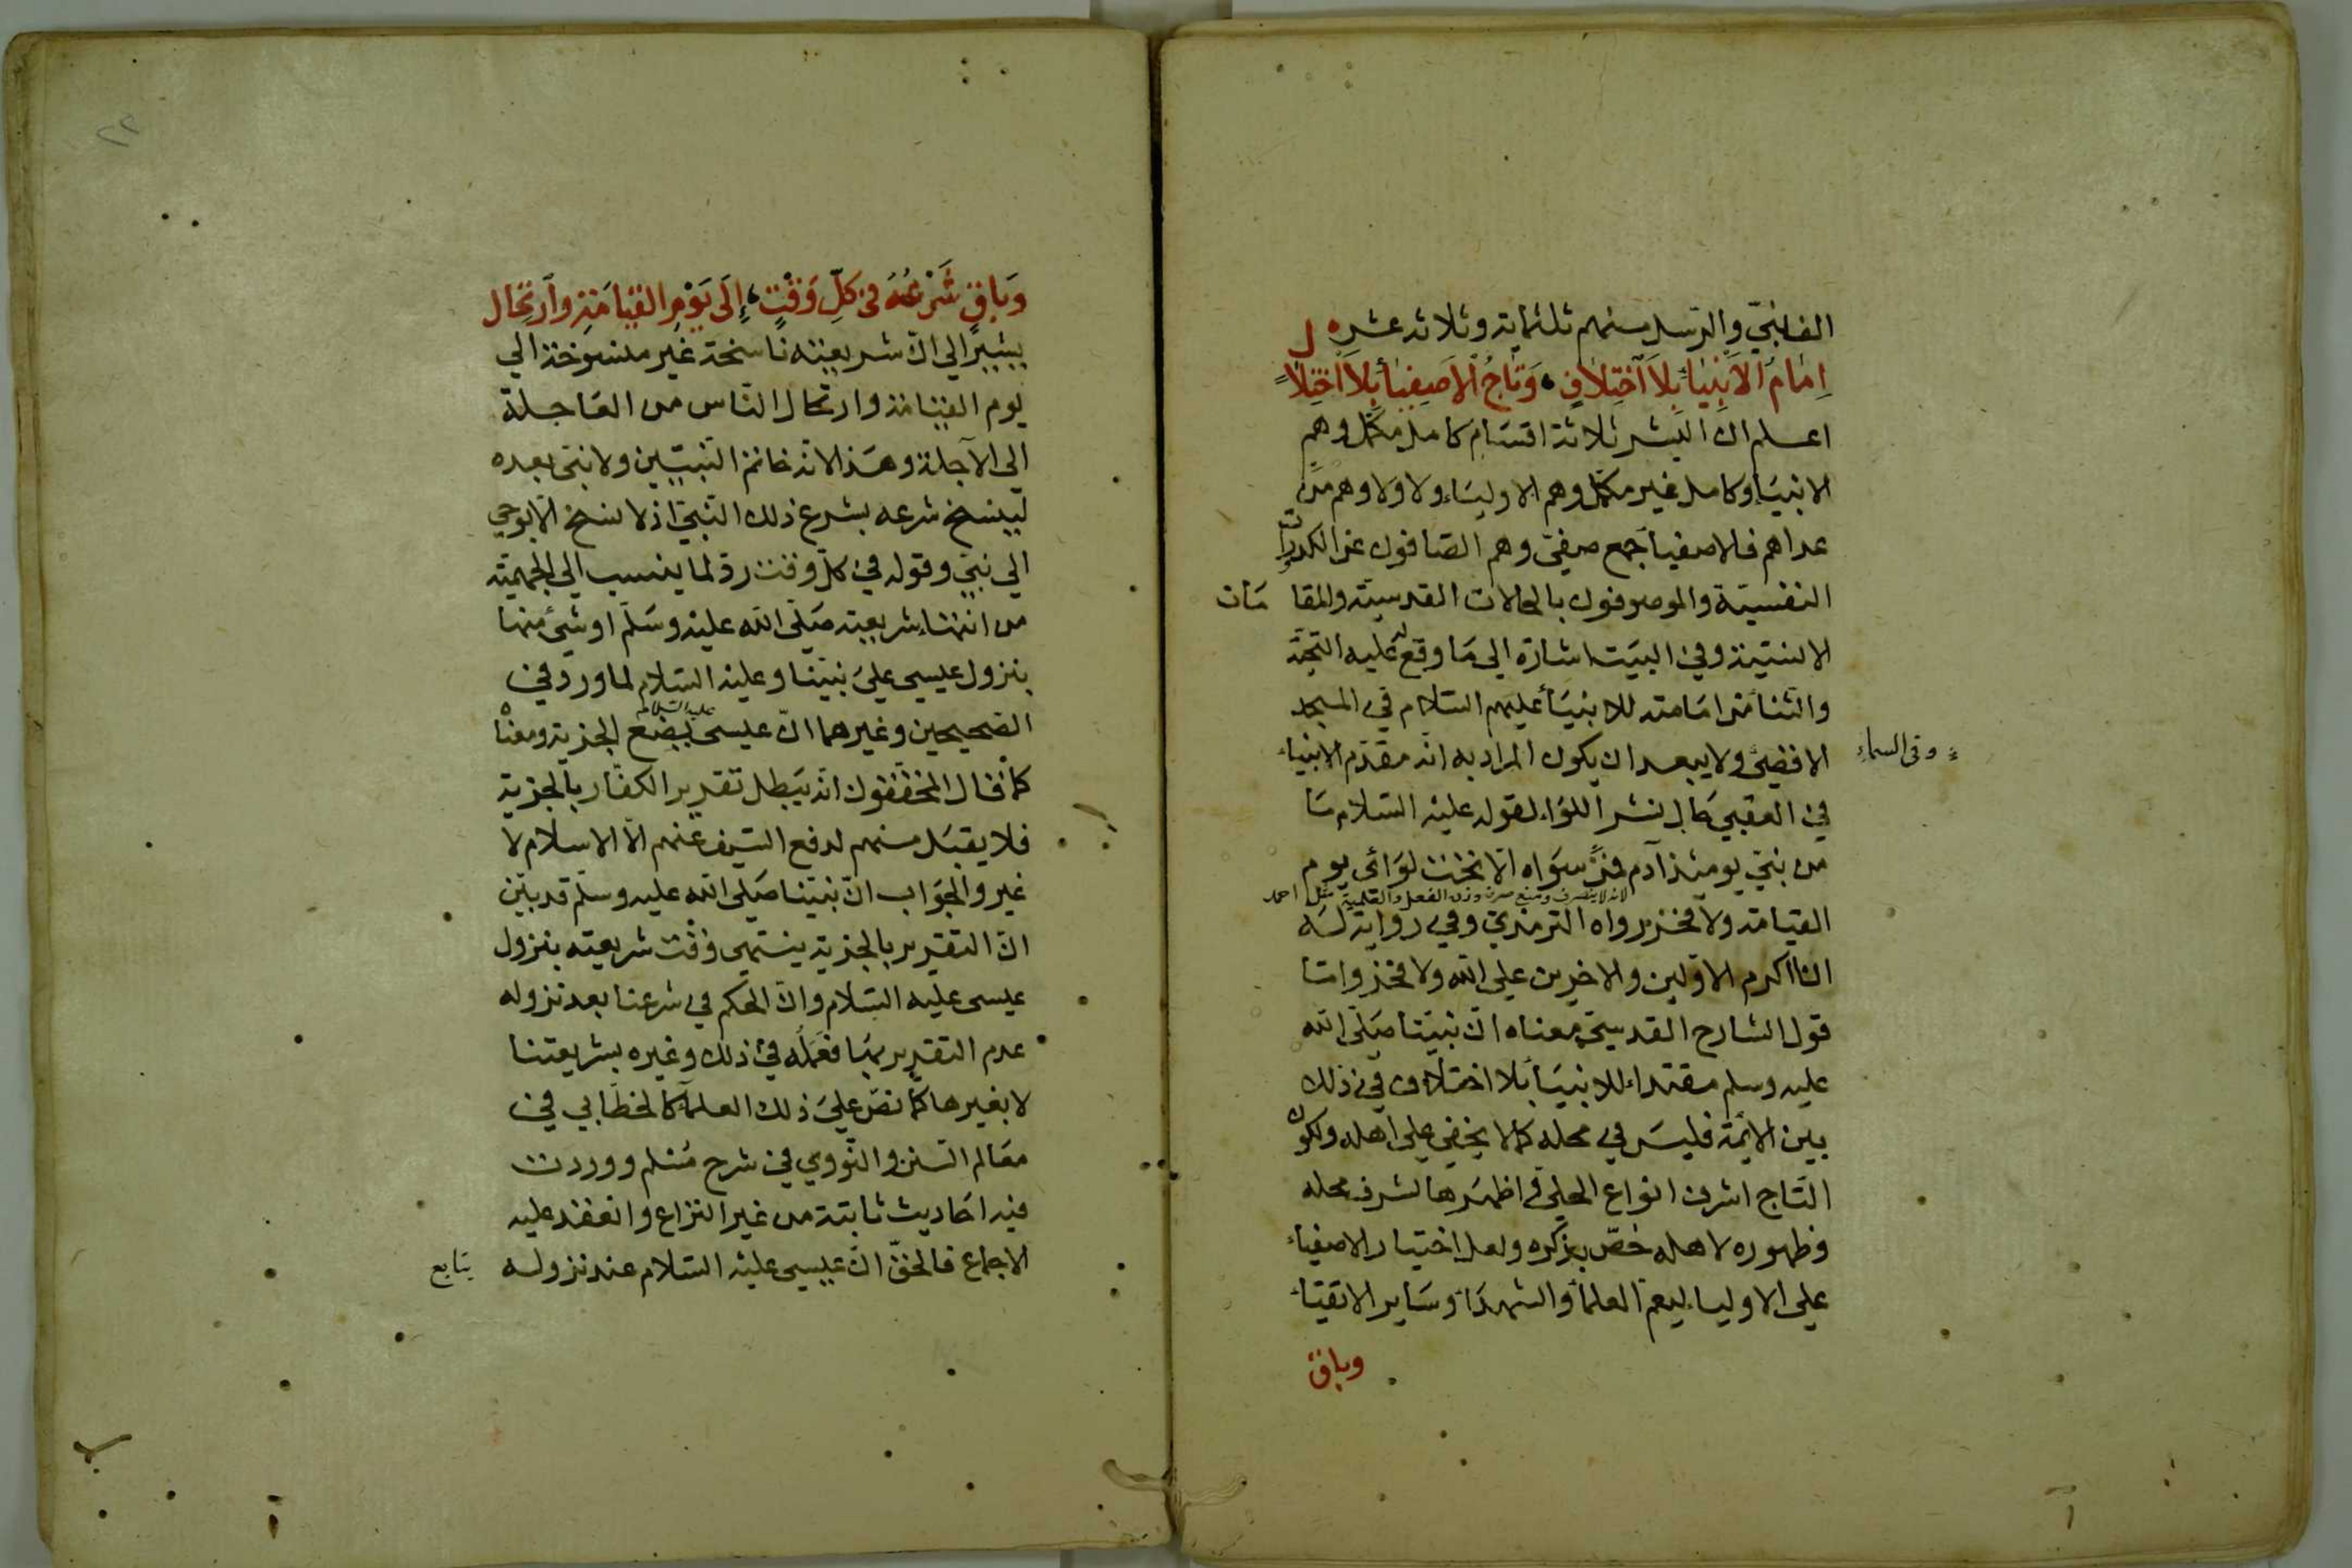 الف نبيّ والرّسل منهم ثلثماية وثلاثه عشر
امامُ الأنبِيَاءِ بِلَا آخْتِلَافٍ، وَتَاجُ الأصْفِيَاءِ بِلَا اخْتِلَالٍ
اعلم انّ البشر ثلاثة اقسام كامل مكمّل وهم
الانبيَاء وكامل غير مكمّل وهم الاوليَاء ولا ولا وهم من
عداهم فالاصفيا جمع صفيّ وهم الصّافون عن الكدورات
النفسيّة والموصوفون بالحالات القدسيّة والمقامَات
الانسيّة وفي البيَت اشارة الى مَا وقع له عليه التحيّة
والثناء من امَامته للانبيَاء عليهم السّلام في المسجد
الاقصَى ولا يبعد ان يكون المراد به انّه مقدّم الانبيَاء
وفي السماء
في العقبي حَال نشر اللوَاء لقوله عليه السّلام مَا
من نبيّ يومئذ آدم فمن سوَاه الّا تحت لوَائى يوم
لانه لا ينصرف ومنع صرف وزن الفعل والعلمية مثل احمد
القيامة ولا فخر رواه الترمذي وفي رواية لَه
انا اكرم الاوّلين والاخرين على الله ولا فخر وامّا
قول الشارح القدسيّ معناه انّ نبيّنا صَلّى الله
عليه وسلم مقتداء للانبيَاء بلا اختلاف في ذلك
بين الائمّة فليسَ في محله كما لا يخفي على اهله ولكون
التَاج اشرف انواع الحلي واظهرَها لشرف محله
وظهوره لاهله خصّ بذكره ولعل اختيار الاصفيَاء
على الاولياء ليعمّ العلماء والشهدَاء وسَاير الاتقيَاء
وباق
٢٢
وَبَاقٍ شَرْعُهُ فى كلِّ وَقْتٍ، إلَى يَوْمِ القِيَامَةِ وارْتِحَال
يشير الي انّ شريعته ناسخة غير منسوخة الي
يوم القيامة وارتحال النّاس من العَاجلة
الى الآجلة وهَذا لانّه خاتم النبيّين ولا نبيّ بعده
لينسخ شرعه بشرع ذلك النّبيّ اذ لا نسخ الّا بوحي
الي نبيّ وقوله في كلّ وقت ردّ لما ينسب الى الجهميّة
من انتهَاء شريعته صَلّى الله عليه وسَلّم او شئ منها
بنزول عيسى عليَ نبيّنا وعليه السّلام لما ورد في
الصّحيحين وغيرهما انّ عيسى عليه السّلام يضَع الجزية ومعنَاه
كما قال المحققون انّه يَبطل تقرير الكفّار بالجزية
فلا يقبَل منهم لدفع السّيف عنهم الّا الاسلام لا
غير والجَوَاب انّ نبيّنا صَلى الله عليه وسلّم قد بيّن
انّ التقرير بالجزية ينتهى وقت شريعته بنزول
عيسى عليه السّلام وانّ الحكم في شرعنا بعد نزوله
عدم التقرير بهَا فعَمَلُه في ذلك وغيره بشريعتنا
لا بغيرها كمَا نصّ عليَ ذلك العلمَاء كالخطَابي في
معَالم السّنن والنّووي في شرح مُسْلم ووردت
فيه احَاديث ثابتة من غير النزاع وانعقد عليه
الاجماع فالحقّ انّ عيسى عليْه السّلام عند نزوله
يتابع